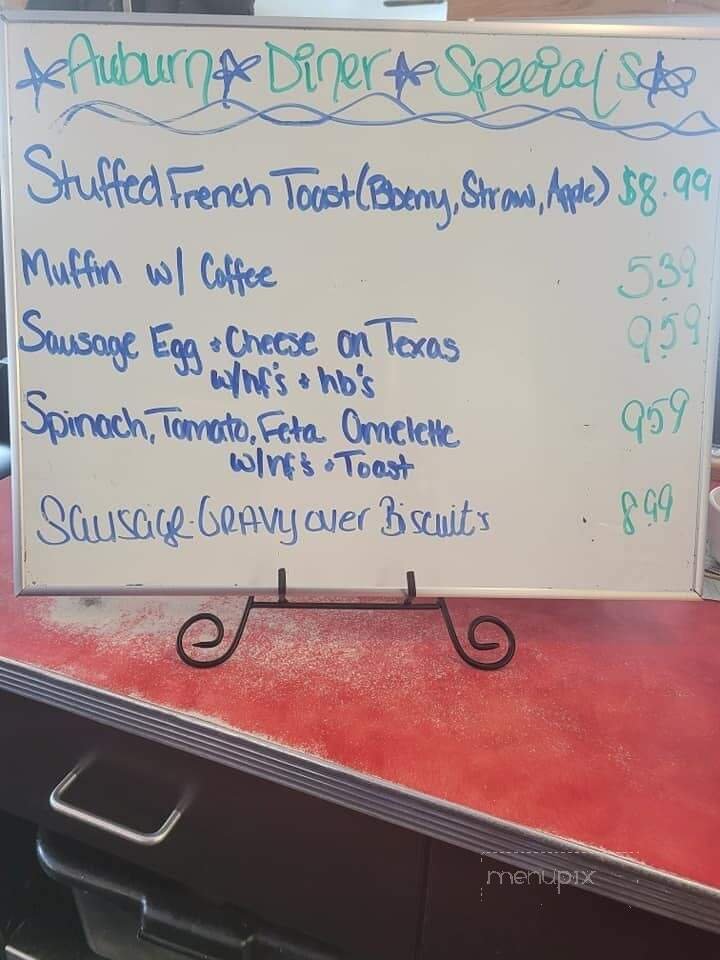 Auburn Diner Specials
Stuffed French Toast (Bberry, Straw, Apple) $8.99
Muffin w/ Coffee 5.39
Sausage Egg + Cheese on Texas 9.59
w/hf's + hb's
Spinach, Tomato, Feta Omelette 9.59
w/hf's + Toast
Sausage-GRAVY over Biscuits 8.99
menupix